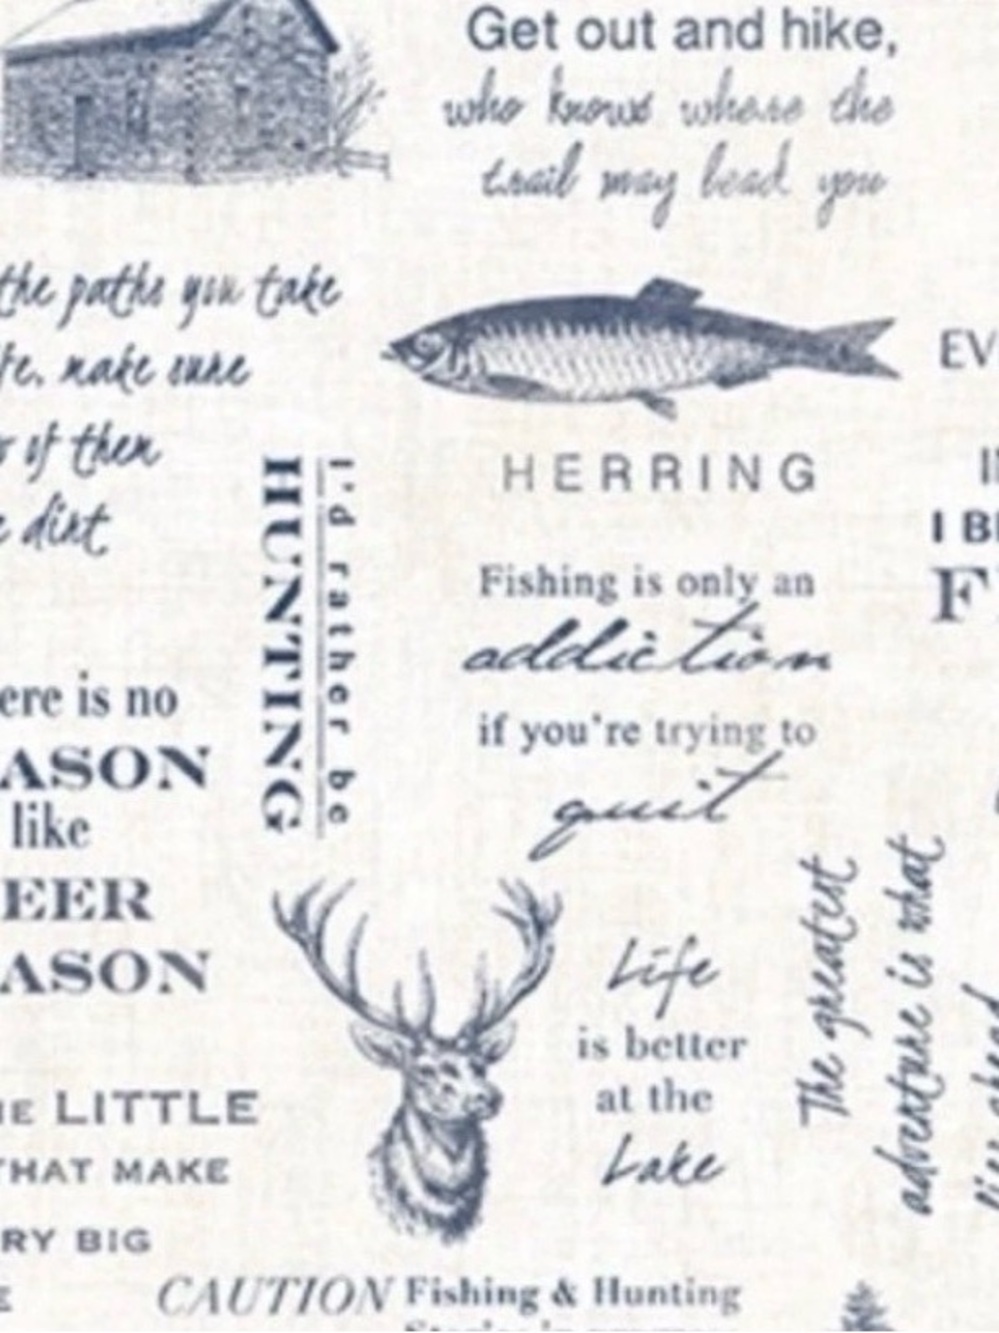 Get out and hike,
who knows where the
trail may lead you
the paths you take
fe, make sure
of them
dirt
HERRING
EV
I'd rather be
HUNTING
Fishing is only an
addiction
if you're trying to
quit
I BE
F
ere is no
ASON
like
EER
ASON
Life
is better
at the
Lake
The greatest
adventure is what
lies ahead
E LITTLE
THAT MAKE
RY BIG
E
CAUTION Fishing & Hunting